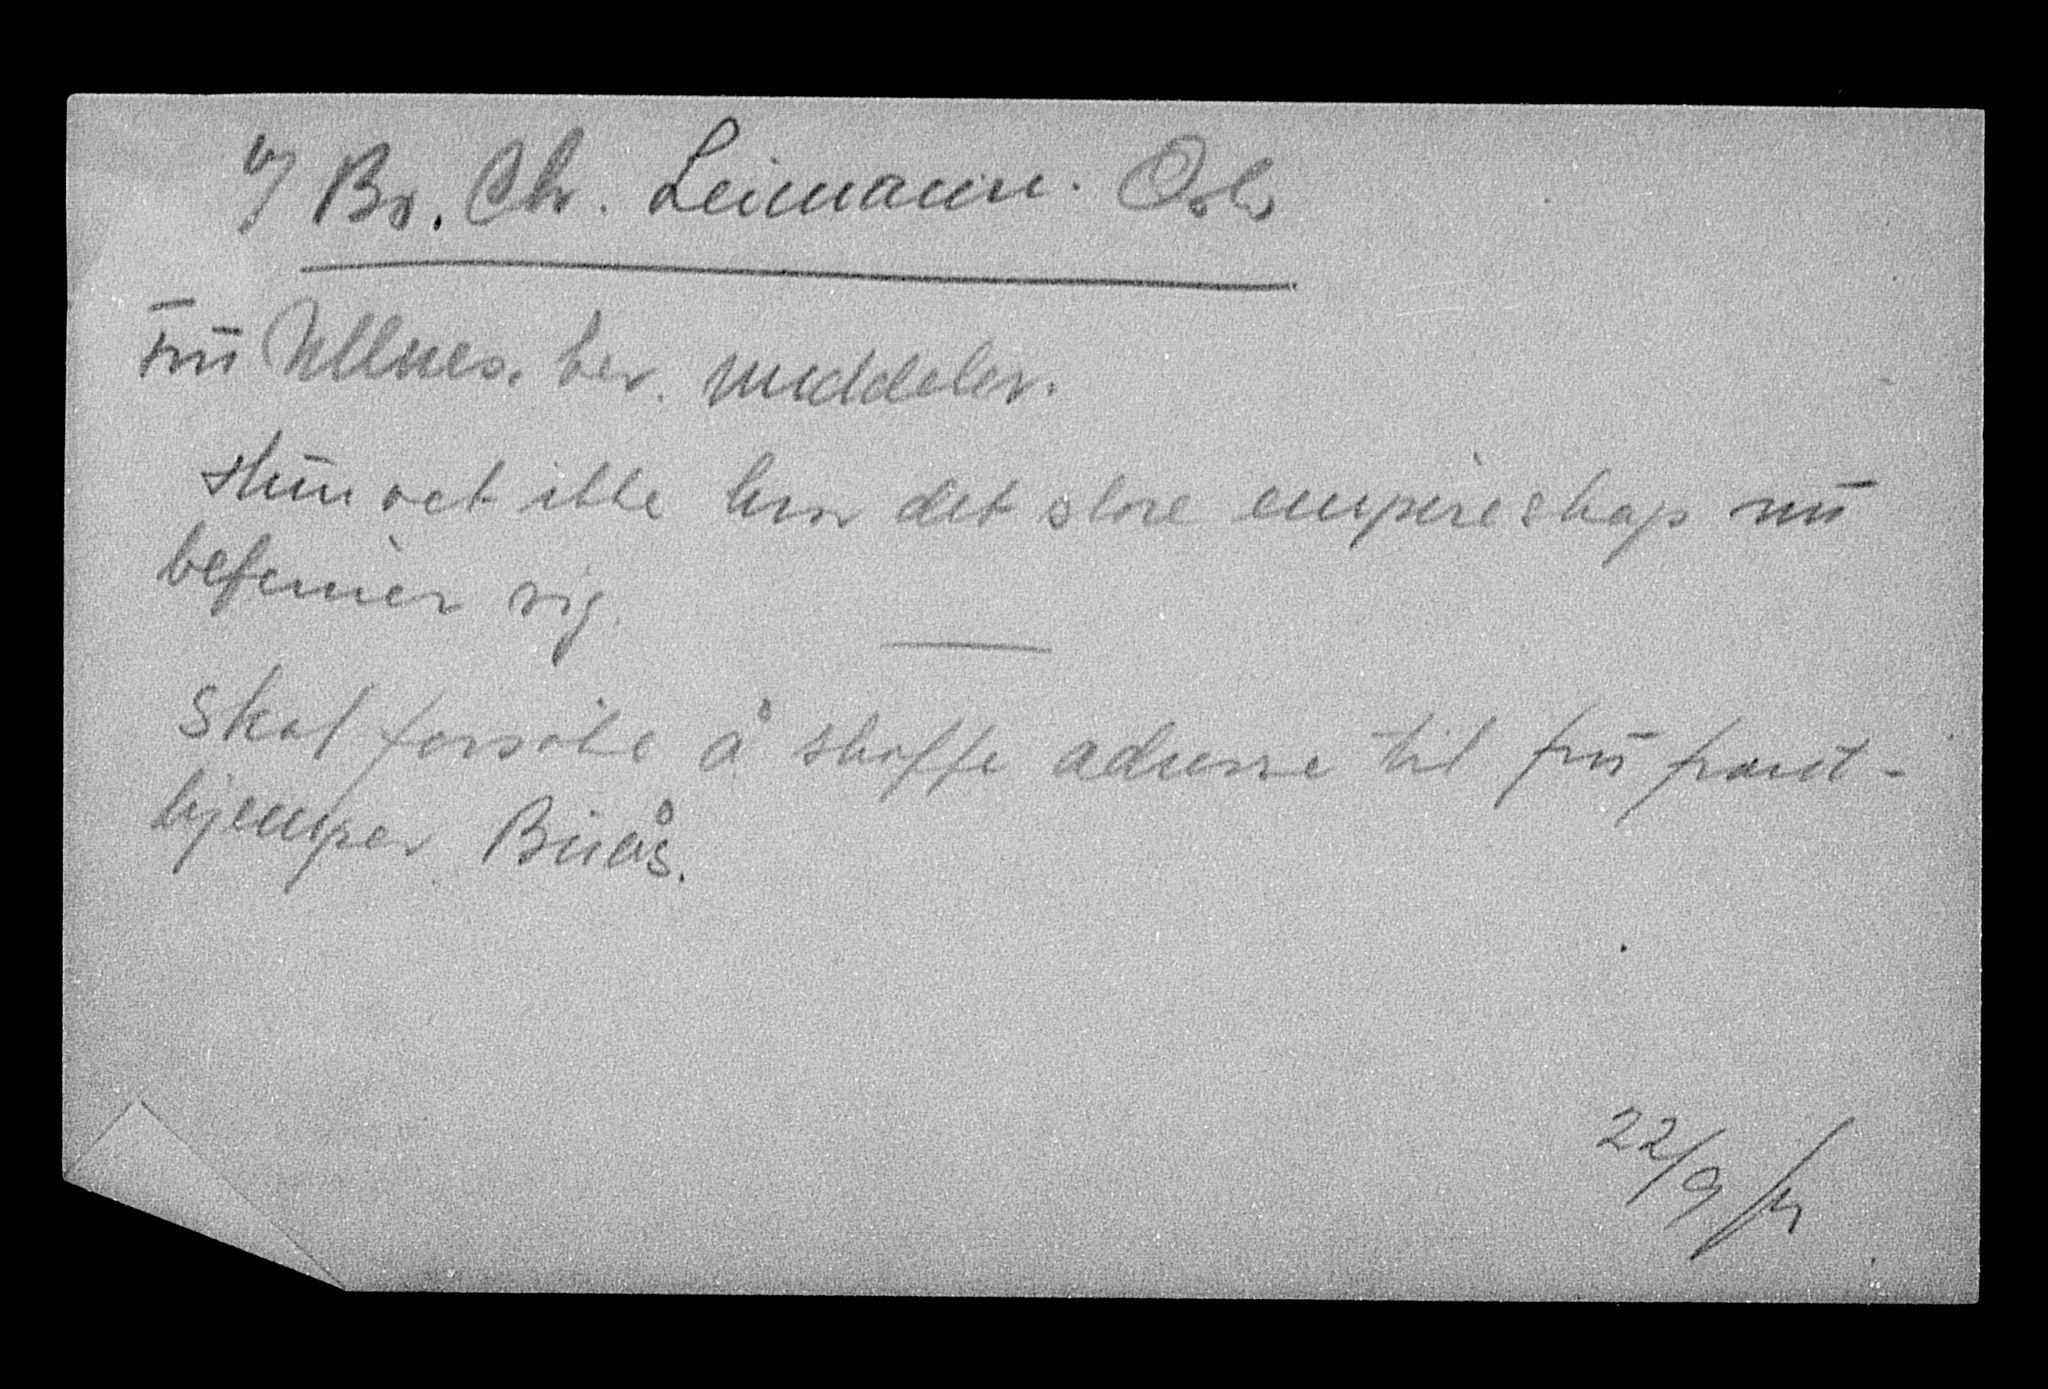 Br. Chr. Leimann. Oslo
Frü Ullnes. ber. meddeler.
Hün vet ikke hvor det store empireskap nü
befinner sig.
Skal forsöke å skaffe adresse til frü front-
kjemper Büås.
22/9